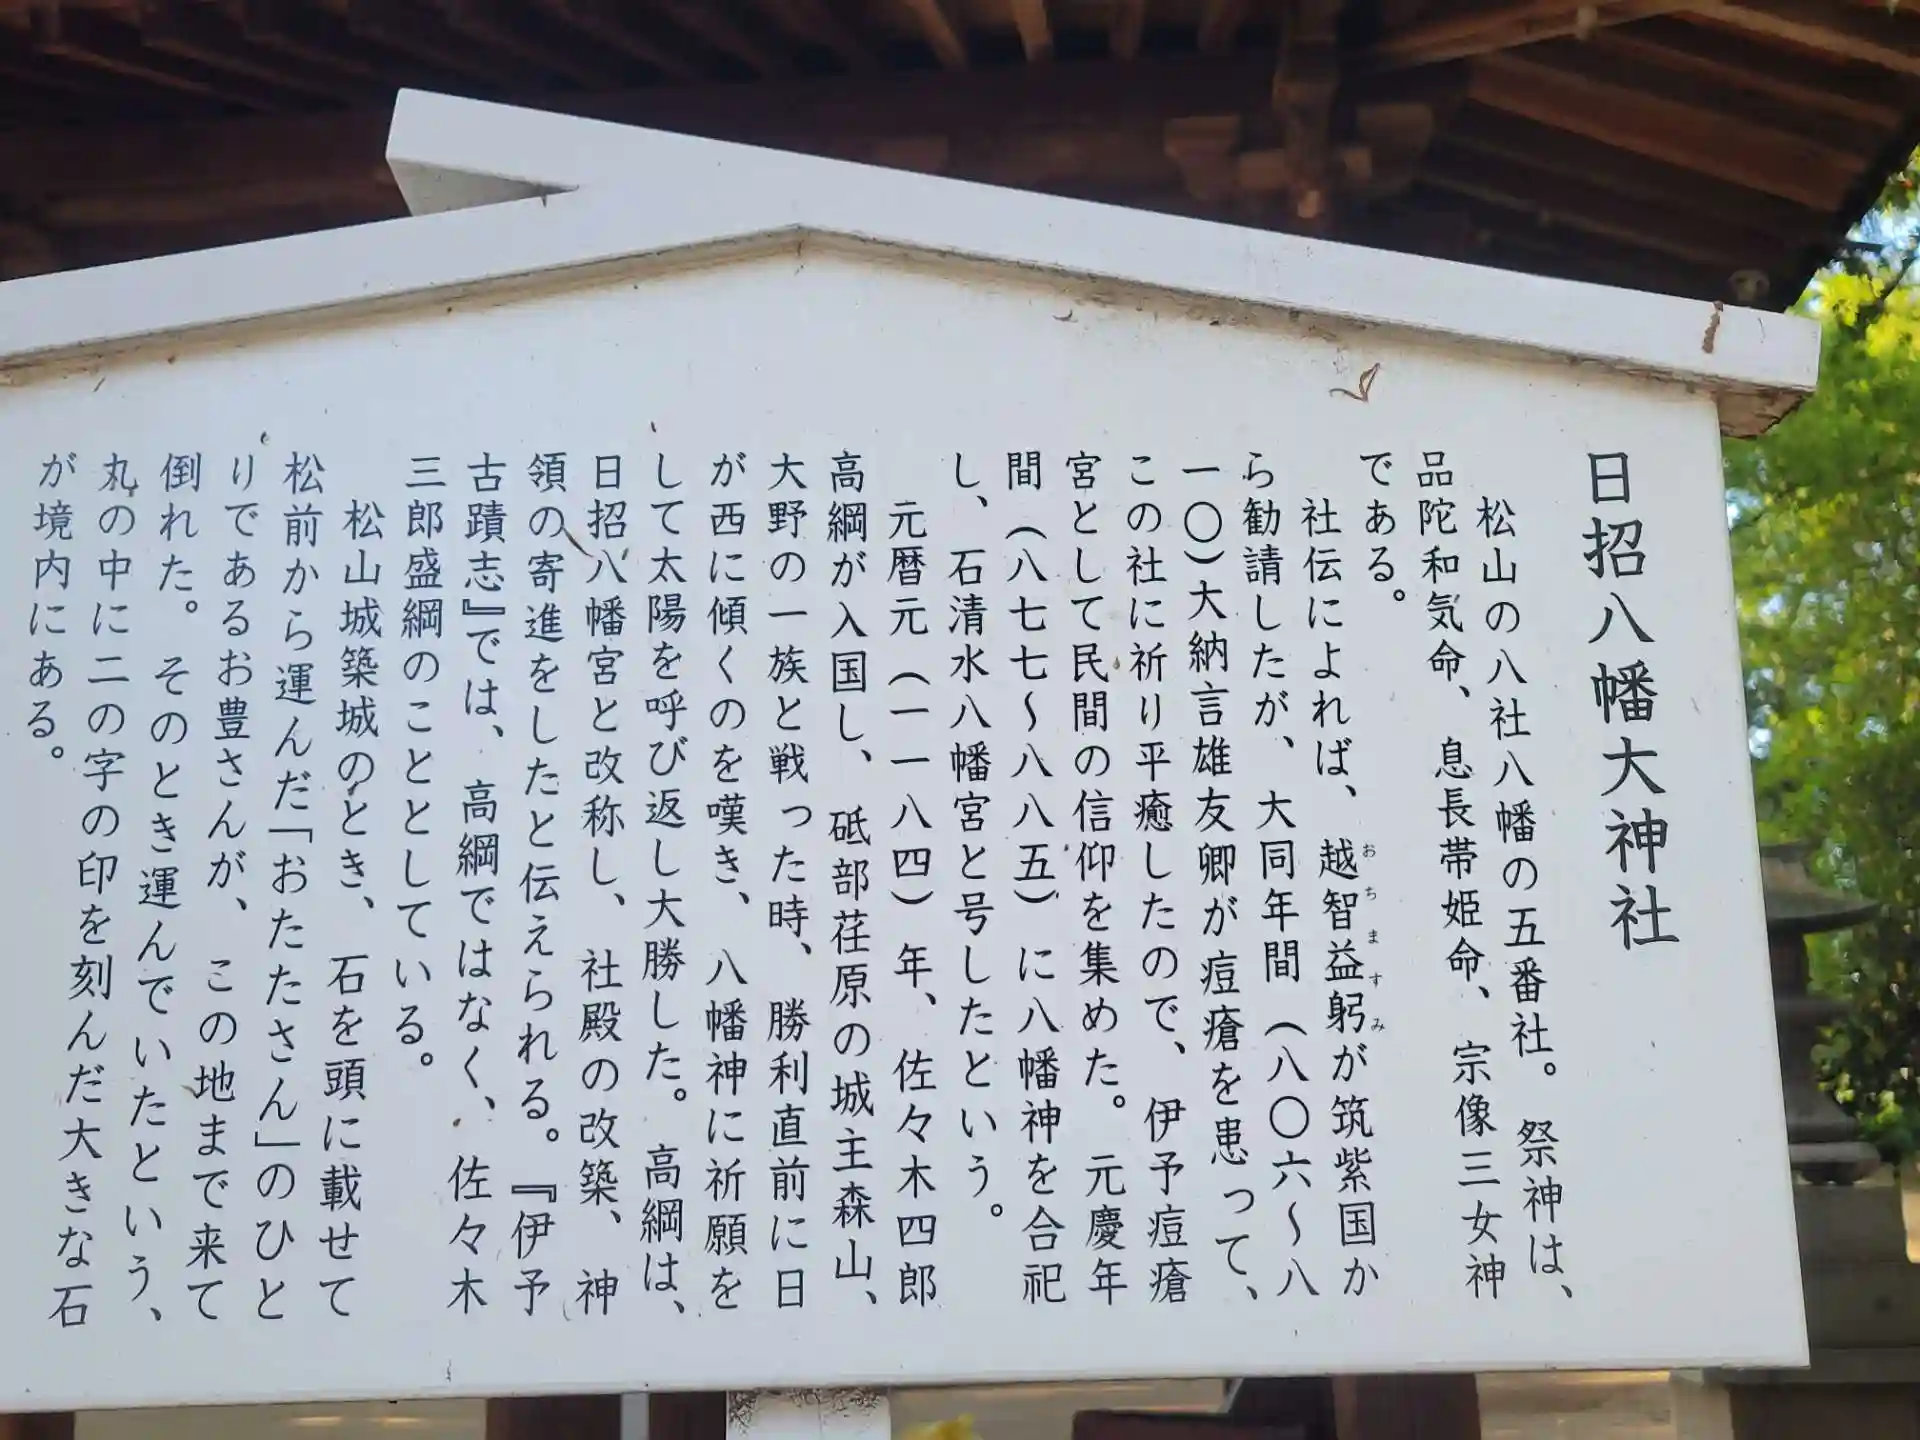 日招八幡大神社
松山の八社八幡の五番社。祭神は、
品陀和気命、息長帯姫命、宗像三女神
である。
社伝によれば、越智益躬が筑紫国か
おちますみ
ら勧請したが、大同年間(八〇六～八
一〇)大納言雄友卿が痘瘡を患って、
この社に祈り平癒したので、伊予痘瘡
宮として民間の信仰を集めた。元慶年
間(八七七～八八五)に八幡神を合祀
し、石清水八幡宮と号したという。
元暦元(一一八四)年、佐々木四郎
高綱が入国し、砥部荏原の城主森山、
大野の一族と戦った時、勝利直前に日
が西に傾くのを嘆き、八幡神に祈願を
して太陽を呼び返し大勝した。高綱は、
日招八幡宮と改称し、社殿の改築、神
領の寄進をしたと伝えられる。『伊予
古蹟志』では、高綱ではなく、佐々木
三郎盛綱のこととしている。
松山城築城のとき、石を頭に載せて
松前から運んだ「おたたさん」のひと
りであるお豊さんが、この地まで来て
倒れた。そのとき運んでいたという、
丸の中に二の字の印を刻んだ大きな石
が境内にある。